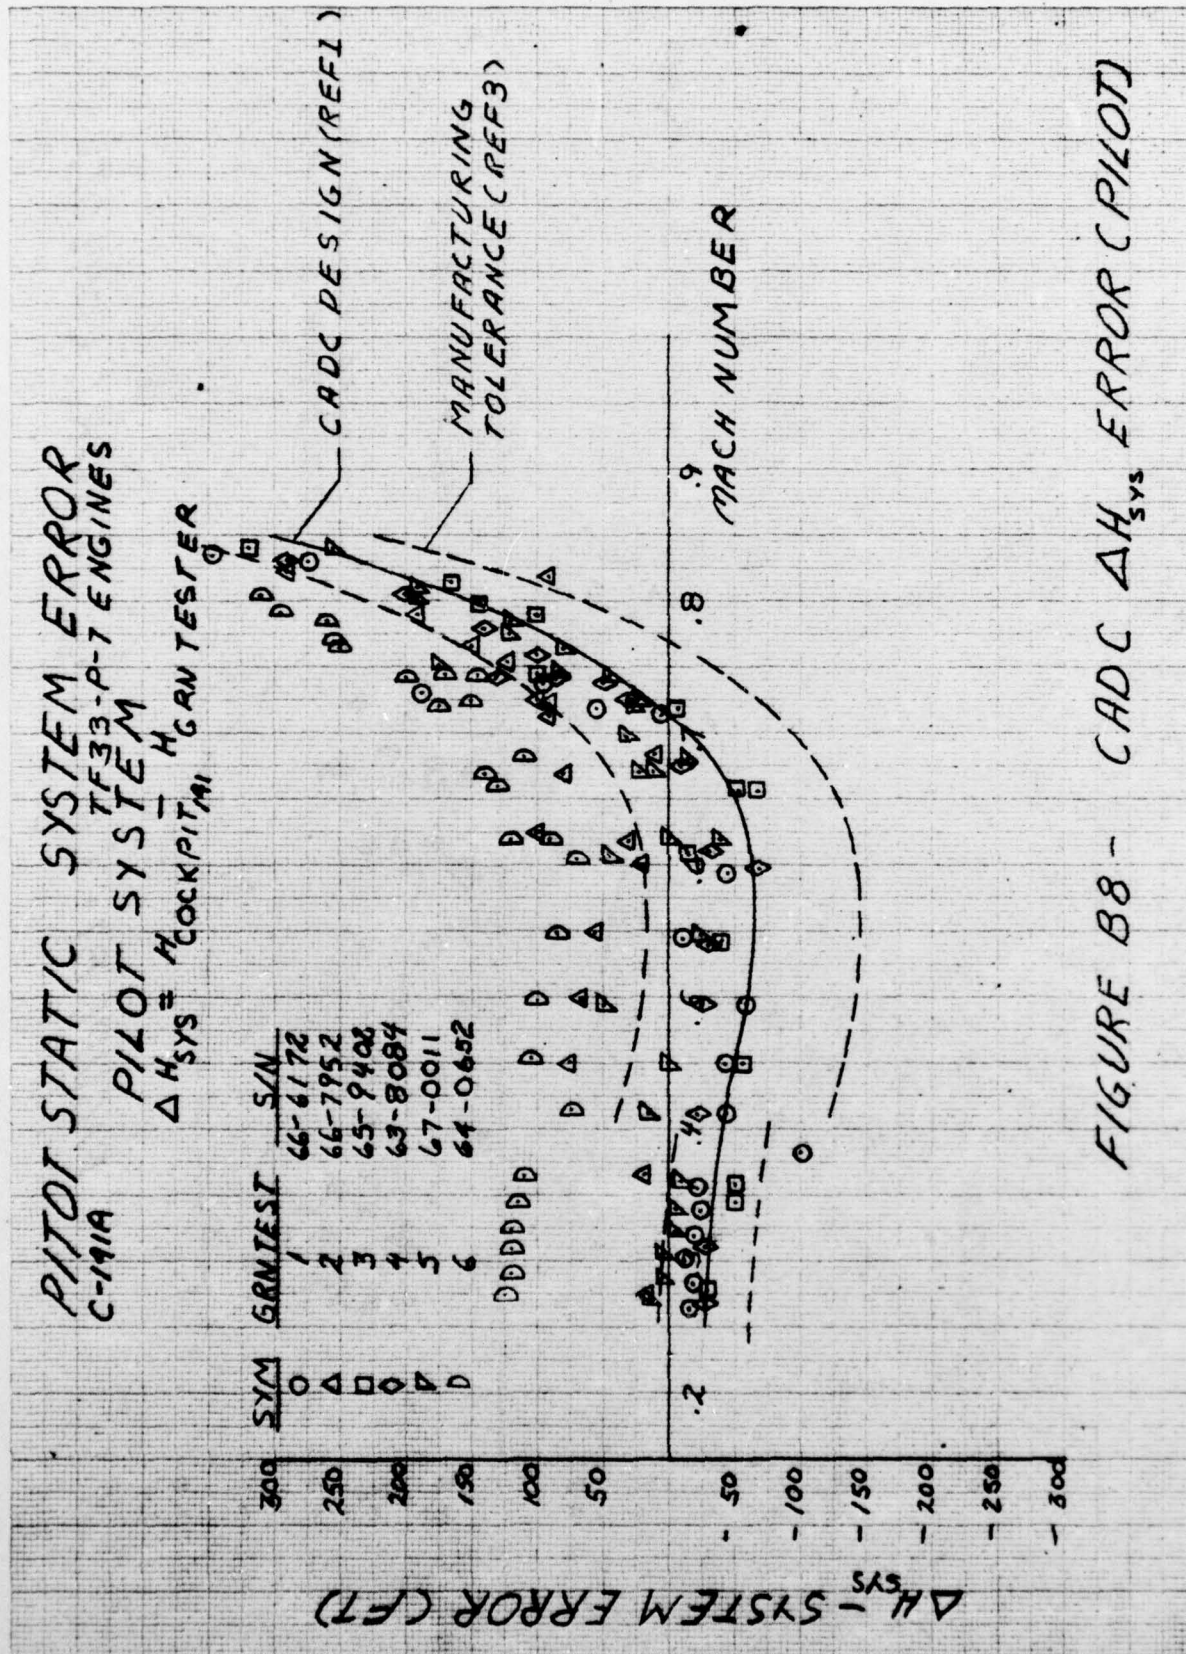 PITOT STATIC SYSTEM ERROR
C-141A
TF33-P-7 ENGINES
PILOT SYSTEM
ΔH SYS = H COCKPIT - H GRNTESTER
SYM GRNTEST S/N
○ 1 66-6172
△ 2 66-7952
□ 3 65-9402
◇ 4 63-8084
5 67-0011
D 6 64-0652
CADC DESIGN (REF 1)
MANUFACTURING
TOLERANCE (REF 3)
300
250
200
150
100
50
- 50
- 100
- 150
- 200
- 250
- 300
ΔH SYS - SYSTEM ERROR (FT)
.2 .3 .4 .5 .6 .7 .8 .9
MACH NUMBER
FIGURE B8 - CADC ΔH SYS ERROR (PILOT)